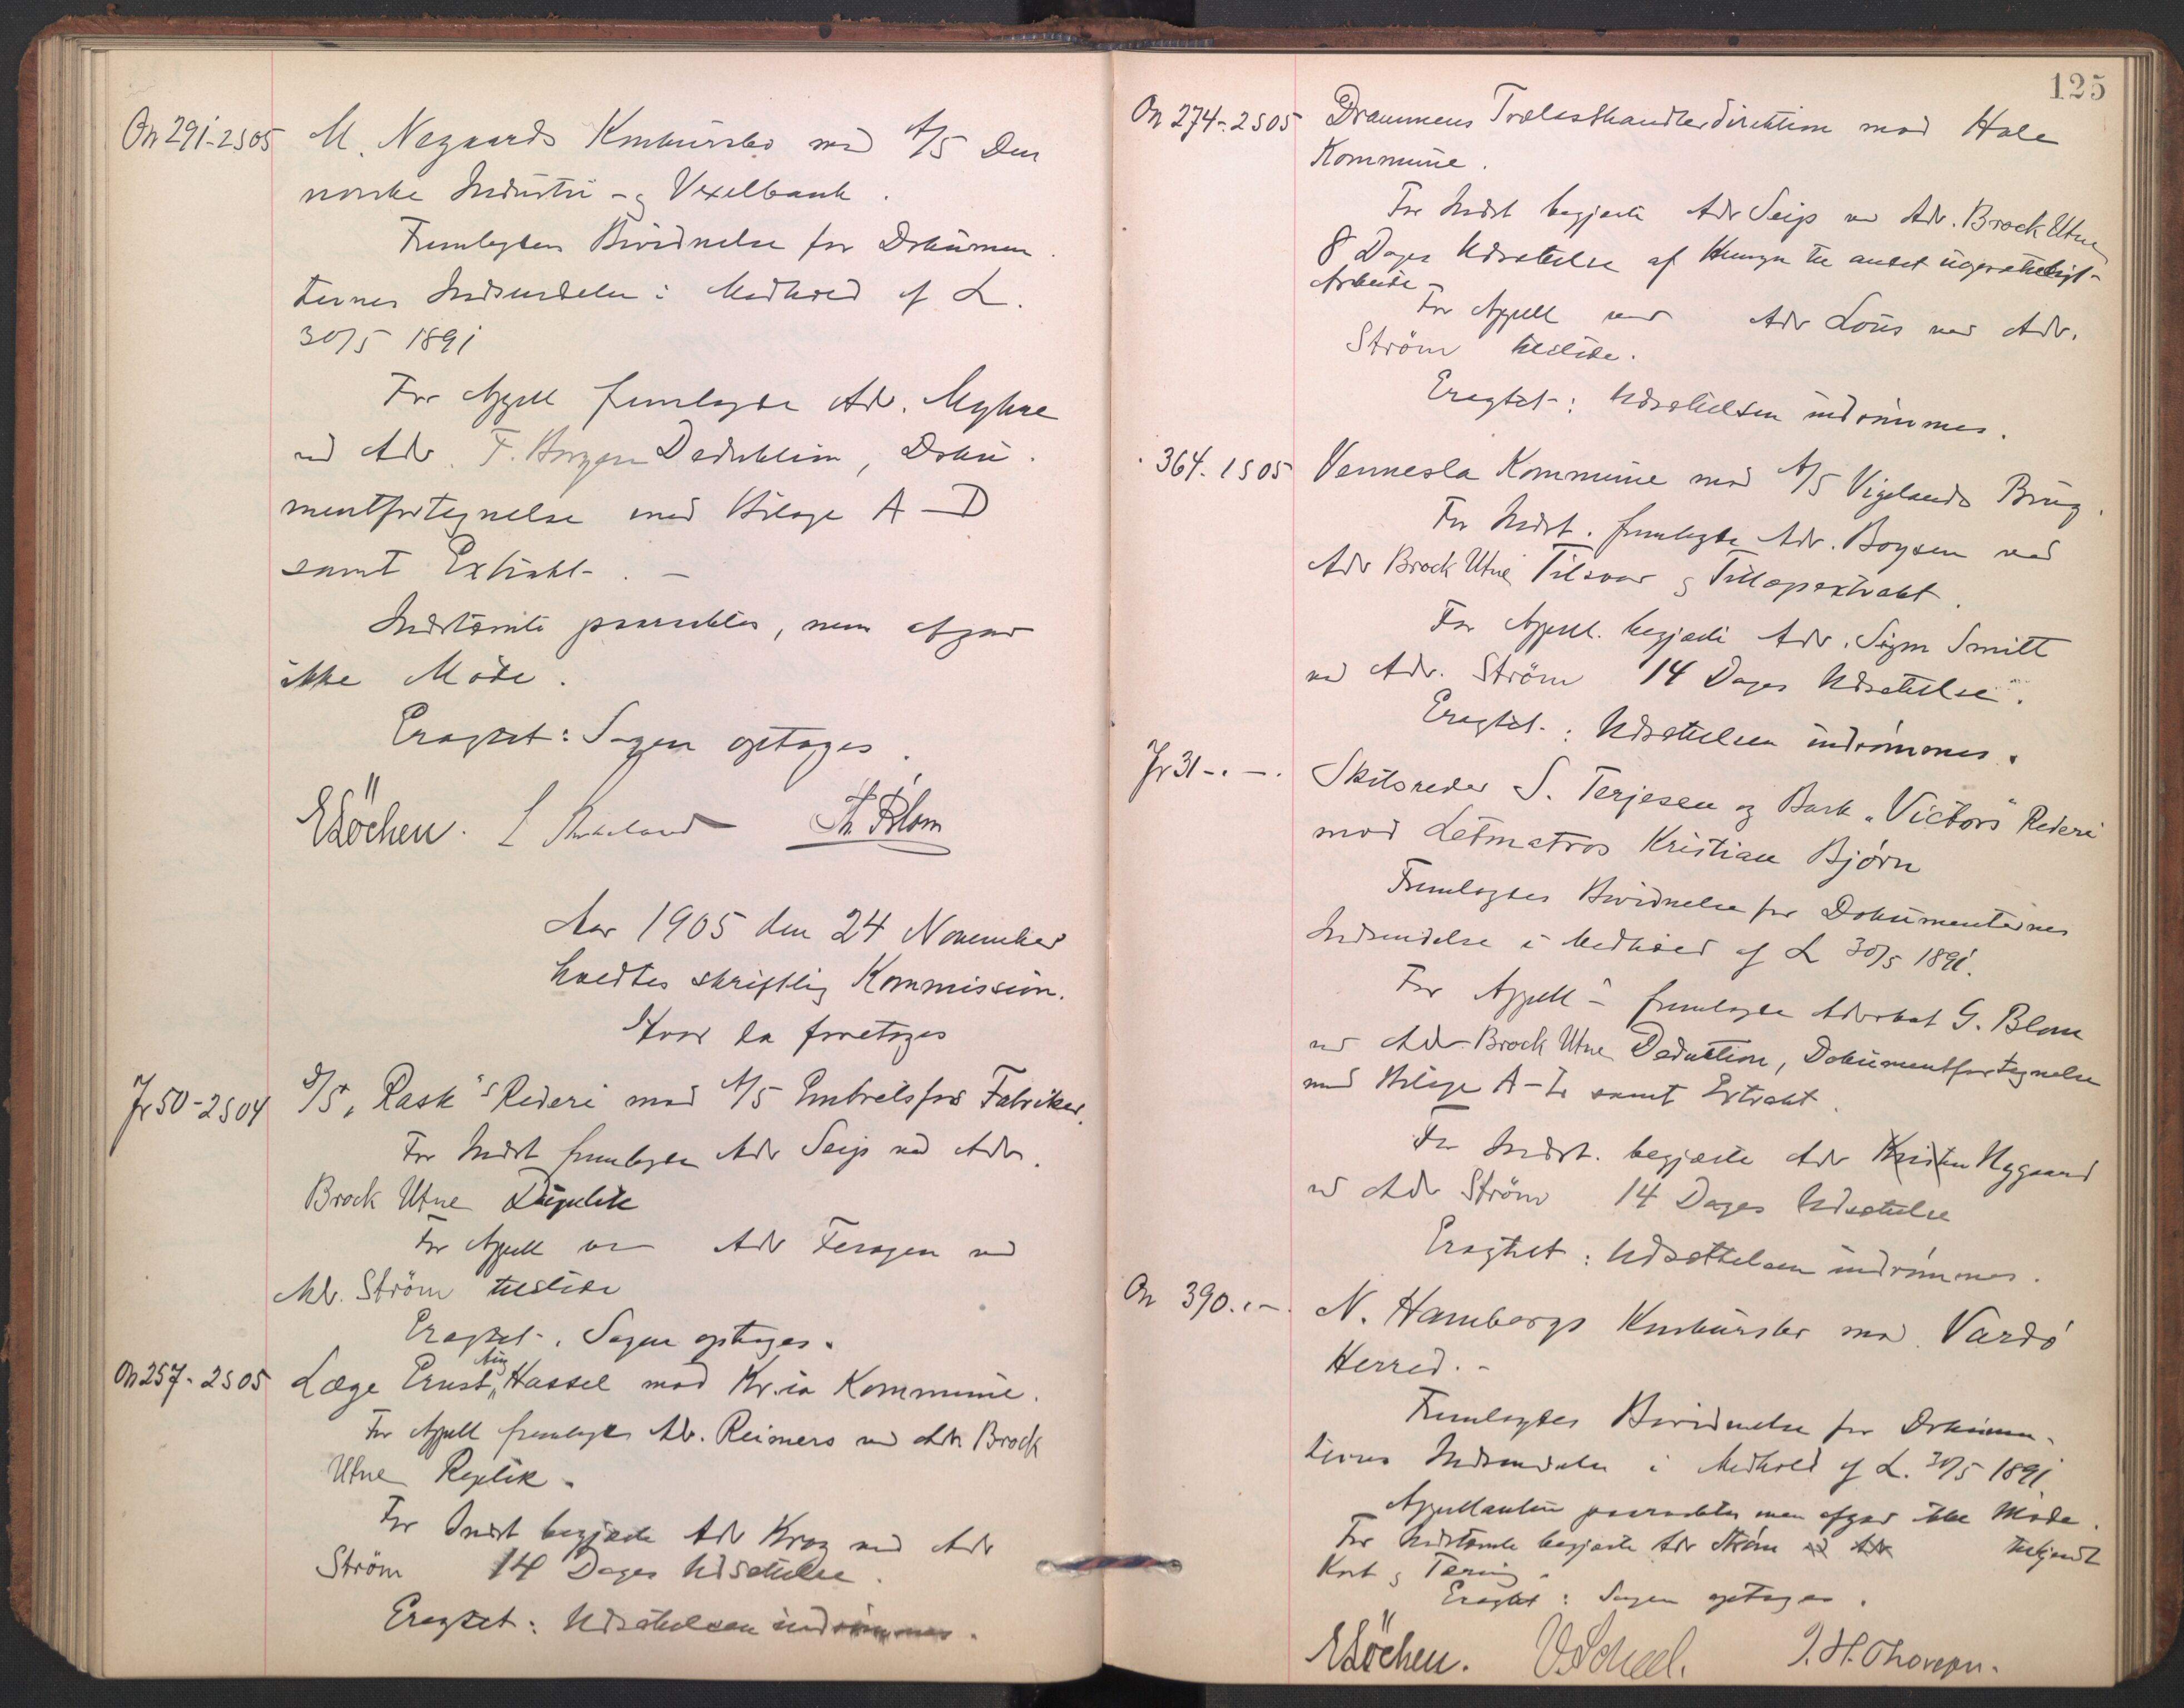 On 291-2S05 M. Nygaards Konkursbo mod A/S Den
norske Industri- og Vexelbank.
Fremlagdes Bevidnelse for Dokumen
ternes Indsendelse i Medhold af L.
30/5 1891
For Appell fremlagde Adv. Myhre
ved Adv. Deduktion, Doku-
mentfortegnelse med Bilage A-D
samt Extrakt. -
Indstævnte paaraabtes, men afgav
ikke Møde.
Eragtet: Sagen optages.
E Löchen. Th Blom
Aar 1905 den 24 November
holdtes skriftlig Kommission.
Hvor da foretoges
Jr 50-2S04 D/S "Rask"s Rederi mod A/S Embretsfos Fabriker.
For Indst fremlagde Adv Seip ved Adv.
Brock Utne Duplik
For Appell var Adv ved
Adv. Ström tilstede
Eragtet. Sagen optages.
On 257-2S05 Læge Ernst Aug Hassel mod Kr.ia Kommune.
For Appell fremlagde Adv. Reimers ved Adv Brock
Utne Replik.
For Indst begjærte Adv Krag ved Adv
Ström 14 Dages Udsættelse.
Eragtet: Udsættelsen indrømmes.
125
On 274-2S05 Drammens Trælasthandlerdirektion mod Hole
Kommune.
For Indst begjærte Adv Seip ved Adv. Brock Utne
8 Dages Udsættelse af Hensyn til andet uopsætteligt
Arbeide-
For Appell var Adv Lous ved Adv.
Ström tilstede.
Eragtet: Udsættelsen indrømmes.
364. 1S05 Vennesla Kommune mod A/S Vigelands Brug.
For Indst. fremlagde Adv. Boysen ved
Adv Brock Utne Tilsvar og Tillægsextrakt.
For Appell. begjærte Adv. Sigm Smitt
ved Adv. Ström 14 Dages Udsættelse.
Eragtet.: Udsættelsen indrømmes.
Jr 31-.-. Skibsreder S. Terjesen og Bark "Victors" Rederi
mod Letmatros Kristian Bjørn
Fremlagdes Bevidnelse for Dokumenternes
Indsendelse i Medhold af L 30/5 1891.
For Appell- fremlagde Advokat G. Blom
ved Adv Brock Utne Deduktion, Dokumentfortegnelse
med Bilage samt Extrakt.
For Indst. begjærte Adv Kristen Nygaard
ved Adv Ström 14 Dages Udsættelse
Eragtet: Udsættelsen indrømmes.
On 390.-. N. Hambergs Konkursbo mod Vardø
Herred.-
Fremlagdes Bevidnelse for Dokumen-
ternes Indsendelse i Medhold af L. 30/5 1891.
Appellanten paaraabtes men afgav ikke Møde.
For Indstævnte begjærte Adv Ström ved Adv tilkjendt
Kost og Tæring.
Eragtet: Sagen optages.
E Löchen. V. Scheel.